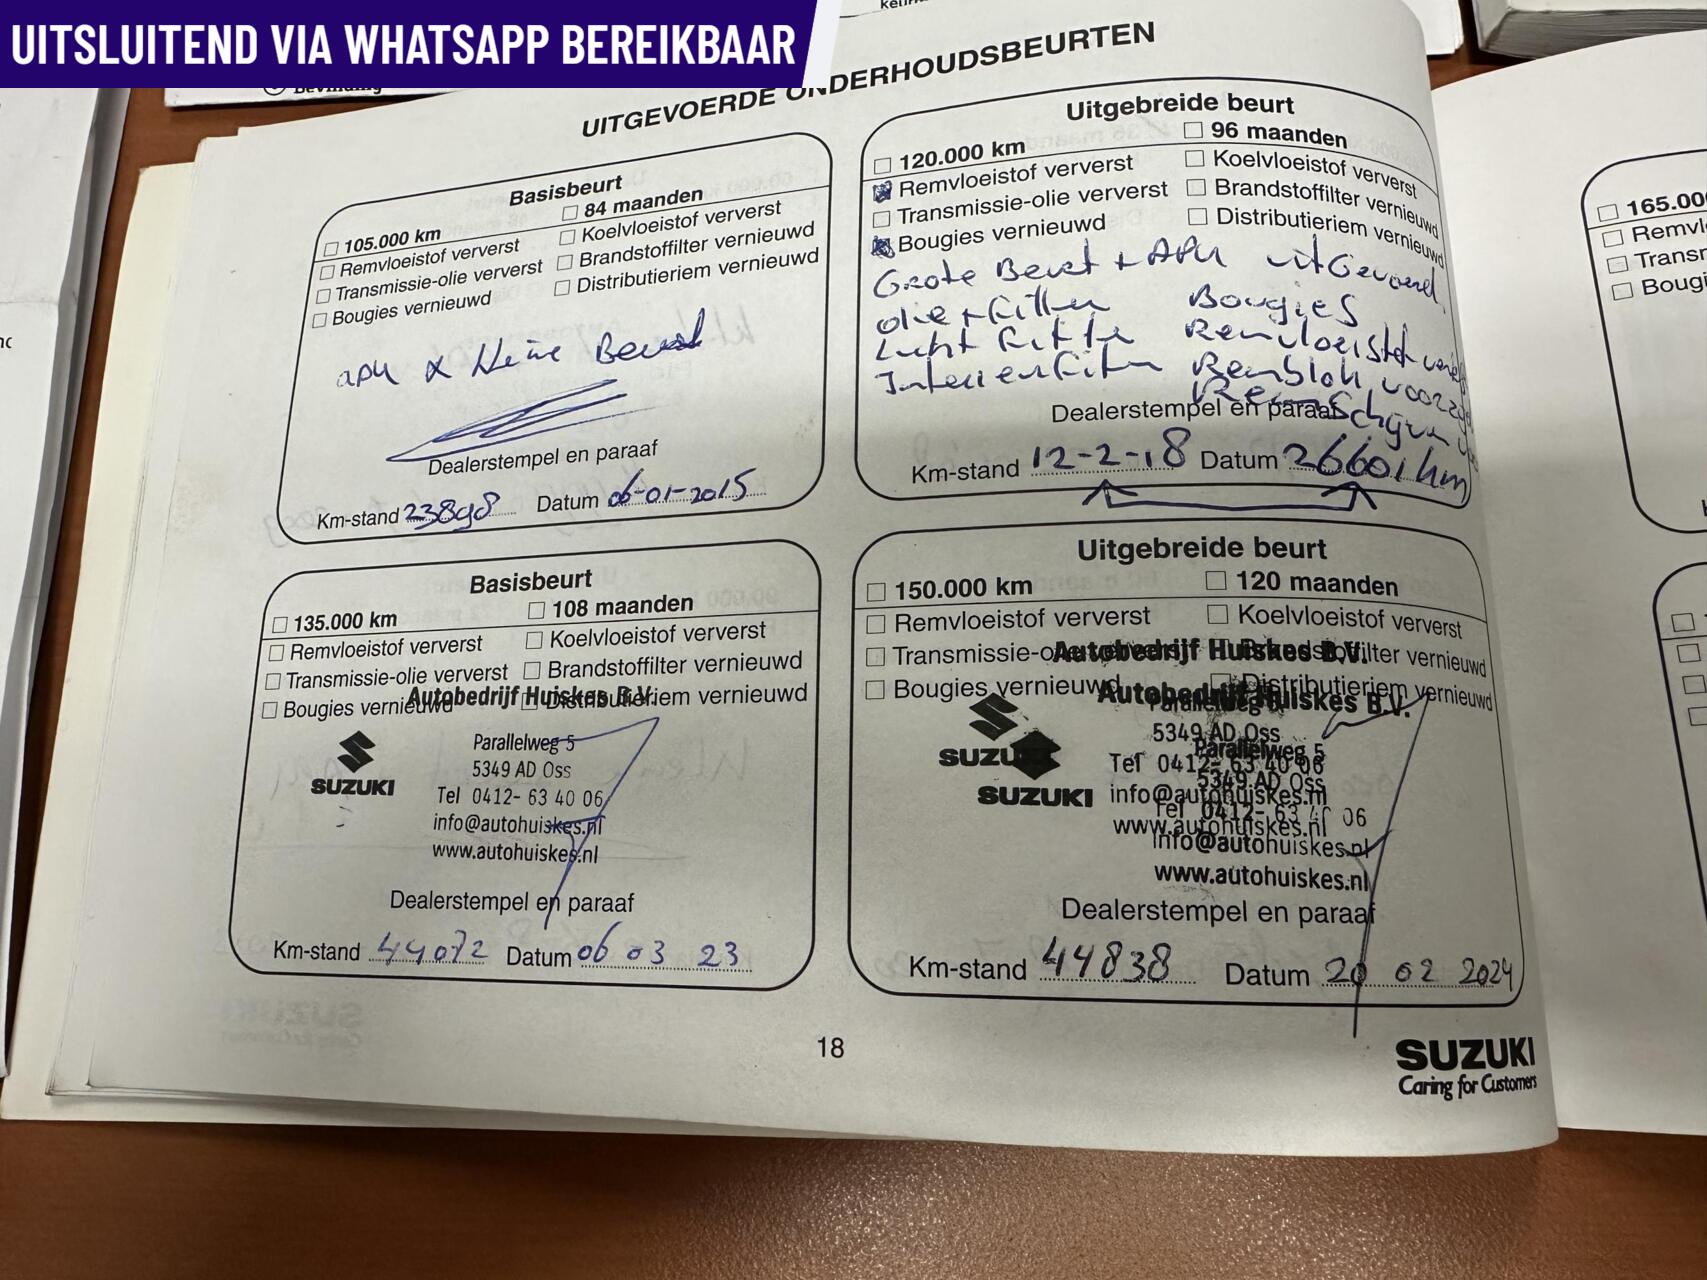 UITSLUITEND VIA WHATSAPP BEREIKBAAR
UITGEVOERDE ONDERHOUDSBEURTEN
Basisbeurt
105.000 km
84 maanden
Remvloeistof ververst
Koelvloeistof ververst
Transmissie-olie ververst
Brandstoffilter vernieuwd
Bougies vernieuwd
Distributieriem vernieuwd
Dealerstempel en paraaf
Km-stand 23898 Datum 06-01-2015
Uitgebreide beurt
120.000 km
96 maanden
Remvloeistof ververst
Koelvloeistof ververst
Transmissie-olie ververst
Brandstoffilter vernieuwd
Bougies vernieuwd
Distributieriem vernieuwd
Grote Beurt + APK uitGevoerd
olie + Filter Bougies
Lucht Filter Remvloeistof
Interieur Filter Remblok
Dealerstempel en paraaf
Km-stand 12-2-18 Datum 26601 km
Basisbeurt
135.000 km
108 maanden
Remvloeistof ververst
Koelvloeistof ververst
Transmissie-olie ververst
Brandstoffilter vernieuwd
Bougies vernieuwd
Distributieriem vernieuwd
Autobedrijf Huiskes B.V.
SUZUKI
Parallelweg 5
5349 AD Oss
Tel 0412- 63 40 06
info@autohuiskes.nl
www.autohuiskes.nl
Dealerstempel en paraaf
Km-stand 44072 Datum 06 03 23
Uitgebreide beurt
150.000 km
120 maanden
Remvloeistof ververst
Koelvloeistof ververst
Transmissie-olie ververst
Brandstoffilter vernieuwd
Bougies vernieuwd
Distributieriem vernieuwd
Autobedrijf Huiskes B.V.
Autobedrijf Huiskes B.V.
Parallelweg 5
5349 AD Oss
SUZUKI
Parallelweg 5
Tel 0412- 63 40 06
5349 AD Oss
SUZUKI
info@autohuiskes.nl
Tel 0412- 63 40 06
www.autohuiskes.nl
info@autohuiskes.nl
www.autohuiskes.nl
Dealerstempel en paraaf
Km-stand 44838 Datum 20 02 2024
18
SUZUKI
Caring for Customers